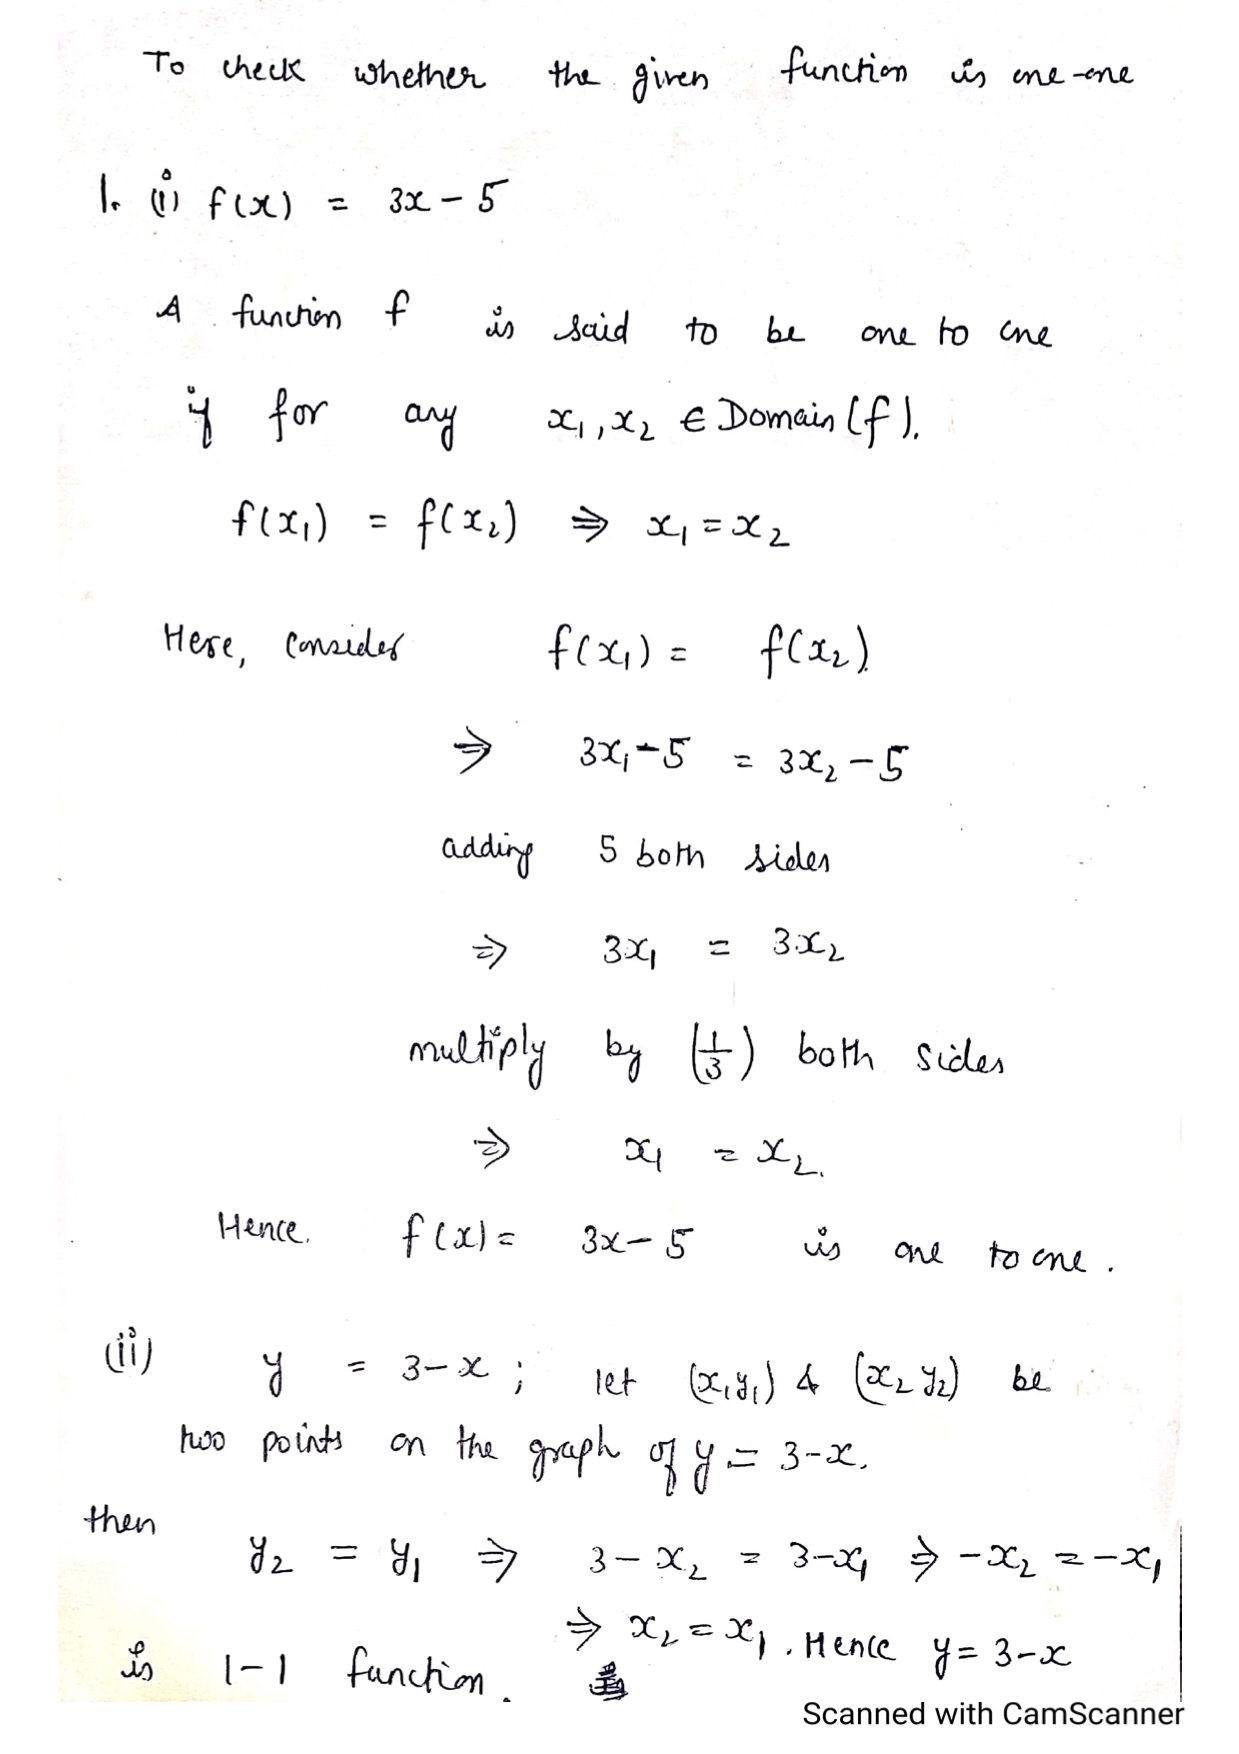 To check whether the given function is one-one
1. (i) f(x) = 3x - 5
A function f is said to be one to one
if for any x₁, x₂ ∈ Domain (f).
f(x₁) = f(x₂) ⇒ x₁ = x₂
Here, consider f(x₁) = f(x₂)
⇒ 3x₁ - 5 = 3x₂ - 5
adding 5 both sides
⇒ 3x₁ = 3x₂
multiply by (1/3) both sides
⇒ x₁ = x₂.
Hence. f(x) = 3x - 5 is one to one.
(ii) y = 3 - x ; let (x₁ y₁) & (x₂ y₂) be
two points on the graph of y = 3 - x.
then
y₂ = y₁ ⇒ 3 - x₂ = 3 - x₁ ⇒ -x₂ = -x₁
⇒ x₂ = x₁. Hence y = 3 - x
is 1-1 function.
Scanned with CamScanner